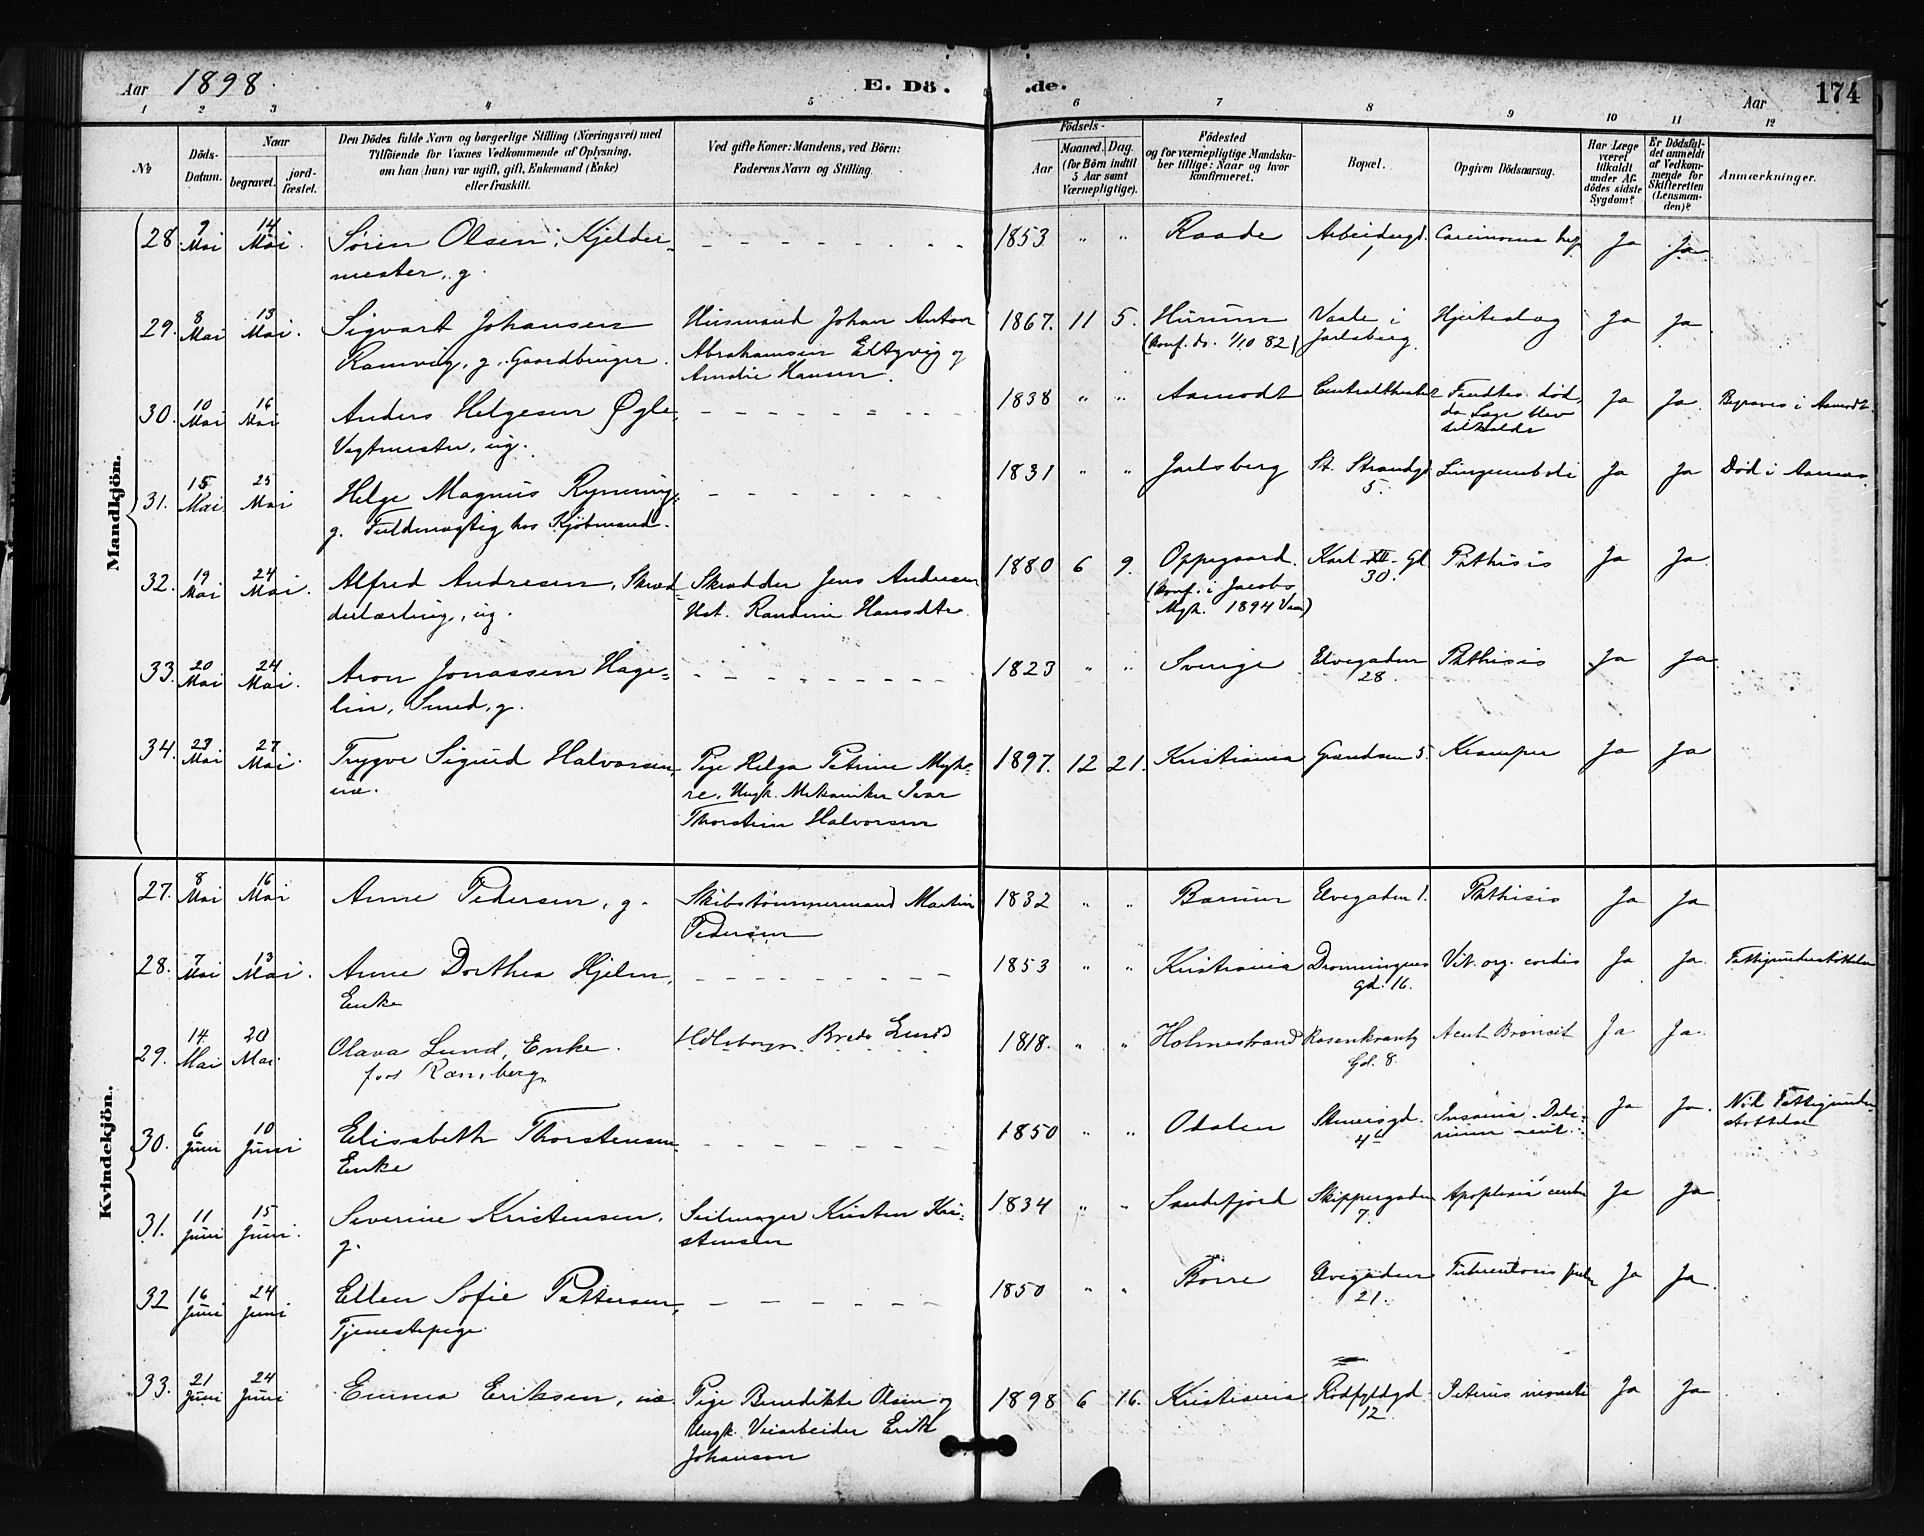 Aar 1898.
E. Dö . .de.
Aar 174
1 2 3 4 5 6 7 8 9 10 11 12
No
Döds-Datum.
Naar
begravet.
jord-fæstet.
Den Dödes fulde Navn og borgerlige Stilling (Næringsvei) med
Tilföiende for Voxnes Vedkommende af Oplysning,
om han (hun) var ugift, gift, Enkemand (Enke)
eller fraskilt.
Ved gifte Koner: Mandens, ved Börn:
Faderens Navn og Stilling.
Födsels-
Aar
Maaned. Dag.
(for Börn indtil
5 Aar samt
Værnepligtige).
Födested
og for værnepligtige Mandska-
ber tillige: Naar og hvor
konfirmeret.
Bopæl.
Opgiven Dödsaarsag.
Har Læge
været
tilkaldt
under Af-
dödes sidste
Sygdom?
Er Dödsfal-
det anmeldt
af Vedkom-
mende for
Skifteretten
(Lensman-
den)?
Anmærkninger.
Mandkjön.
28. 7 Mai 14 Mai. Sören Olsen, Kjelder- 1853 " " Raade Arbeidergd. Carcinoma hep Ja Ja
mester, g. 1
29. 8 Mai 13 Mai. Sigvart Johansen Husmand Johan Anton 1867. 11 5. Hurum Vaale i Hjerteslag Ja Ja
Ramvig, g. Gaardbruger. Abrahamsen og (Konf. do. 1/10 82) Jarlsberg.
Amalie Hansen.
30. 10 Mai 16 Mai Anders Helgesen Øgle, 1838 " " Aamodt Centraltheatret Fundtes død, Ja Ja. Begraves i Aamodt
Vagtmester, ug. da Læge blev
tilkaldt
31. 15 Mai 25 Mai Helge Magnus Ryning, 1831 " " Jarlsberg St. Strandgd. Lungeemboli Ja Ja Död i Aamas.
g. Fuldmægtig hos Kjöbmand. 5.
32. 19 Mai 24 Mai. Alfred Andresen, Skræd- Skrædder Jens Andresen 1880 6 9. Oppegaard. Karl XII. Gd. Pthisis Ja Ja.
derlærling, ug. Hst. Randine Hansdtr. (Konf. i Jacobs 30.
Mgh. 1894 Vaar)
33. 20 Mai 24 Mai. Aron Jonassen Hage- 1823 " " Sverige Elvegaden Phthisis Ja Ja.
lin, Smed, g. 28.
34. 23 Mai 27 Mai. Trygve Sigurd Halvorsen, Pige Helga Petrine Myh- 1897. 12 21. Kristiania Grændsen 5. Kramper Ja Ja
uæ. re, Ungk. Mekaniker Ivar
Thorstein Halvorsen
Kvindekjön.
27. 8 Mai 16 Mai Anne Pedersen, g. Skibstömmermand Martin 1832 " " Bærum Elvegaden 1. Phthisis Ja Ja
Pedersen
28. 7 Mai 13 Mai. Anne Dorthea Hjelm, 1853 " " Kristiania Dronningens Vit. org. cordis Ja Ja. Fattigunderstöttelse
Enke gd. 16.
29. 14 Mai 20 Mai. Olava Lund, Enke. Bredo Lund 1818. " " Holmestrand Rosenkrantz Acut Broncit Ja Ja.
Gd. 8.
30. 6 Juni 10 Juni Elisabeth Thorstensen 1850 " " Odalen Stenersgd. Insania. Deli- Ja Ja. Nöd Fattigunder-
Enke rium stöttelse
31. 11 Juni 15 Juni. Severine Kristensen, Seilmager Kristen Kri- 1834 " " Sandefjord Skippergaden Apoplexia cerebri Ja Ja
g. stensen 7.
32 16 Juni 24 Juni Ellen Sofie Pettersen, 1850 " " Borre Elvegaden Tuberculosis pulm Ja Ja.
Tjenestepige. 21.
33. 21 Juni 24 Juni Emma Eriksen, uæ Pige Benedikte Olsen og 1898 6 16. Kristiania Rödfyldgd. Icterus neonati Ja Ja
Ungk. Veiarbeider Erik 12.
Johanson